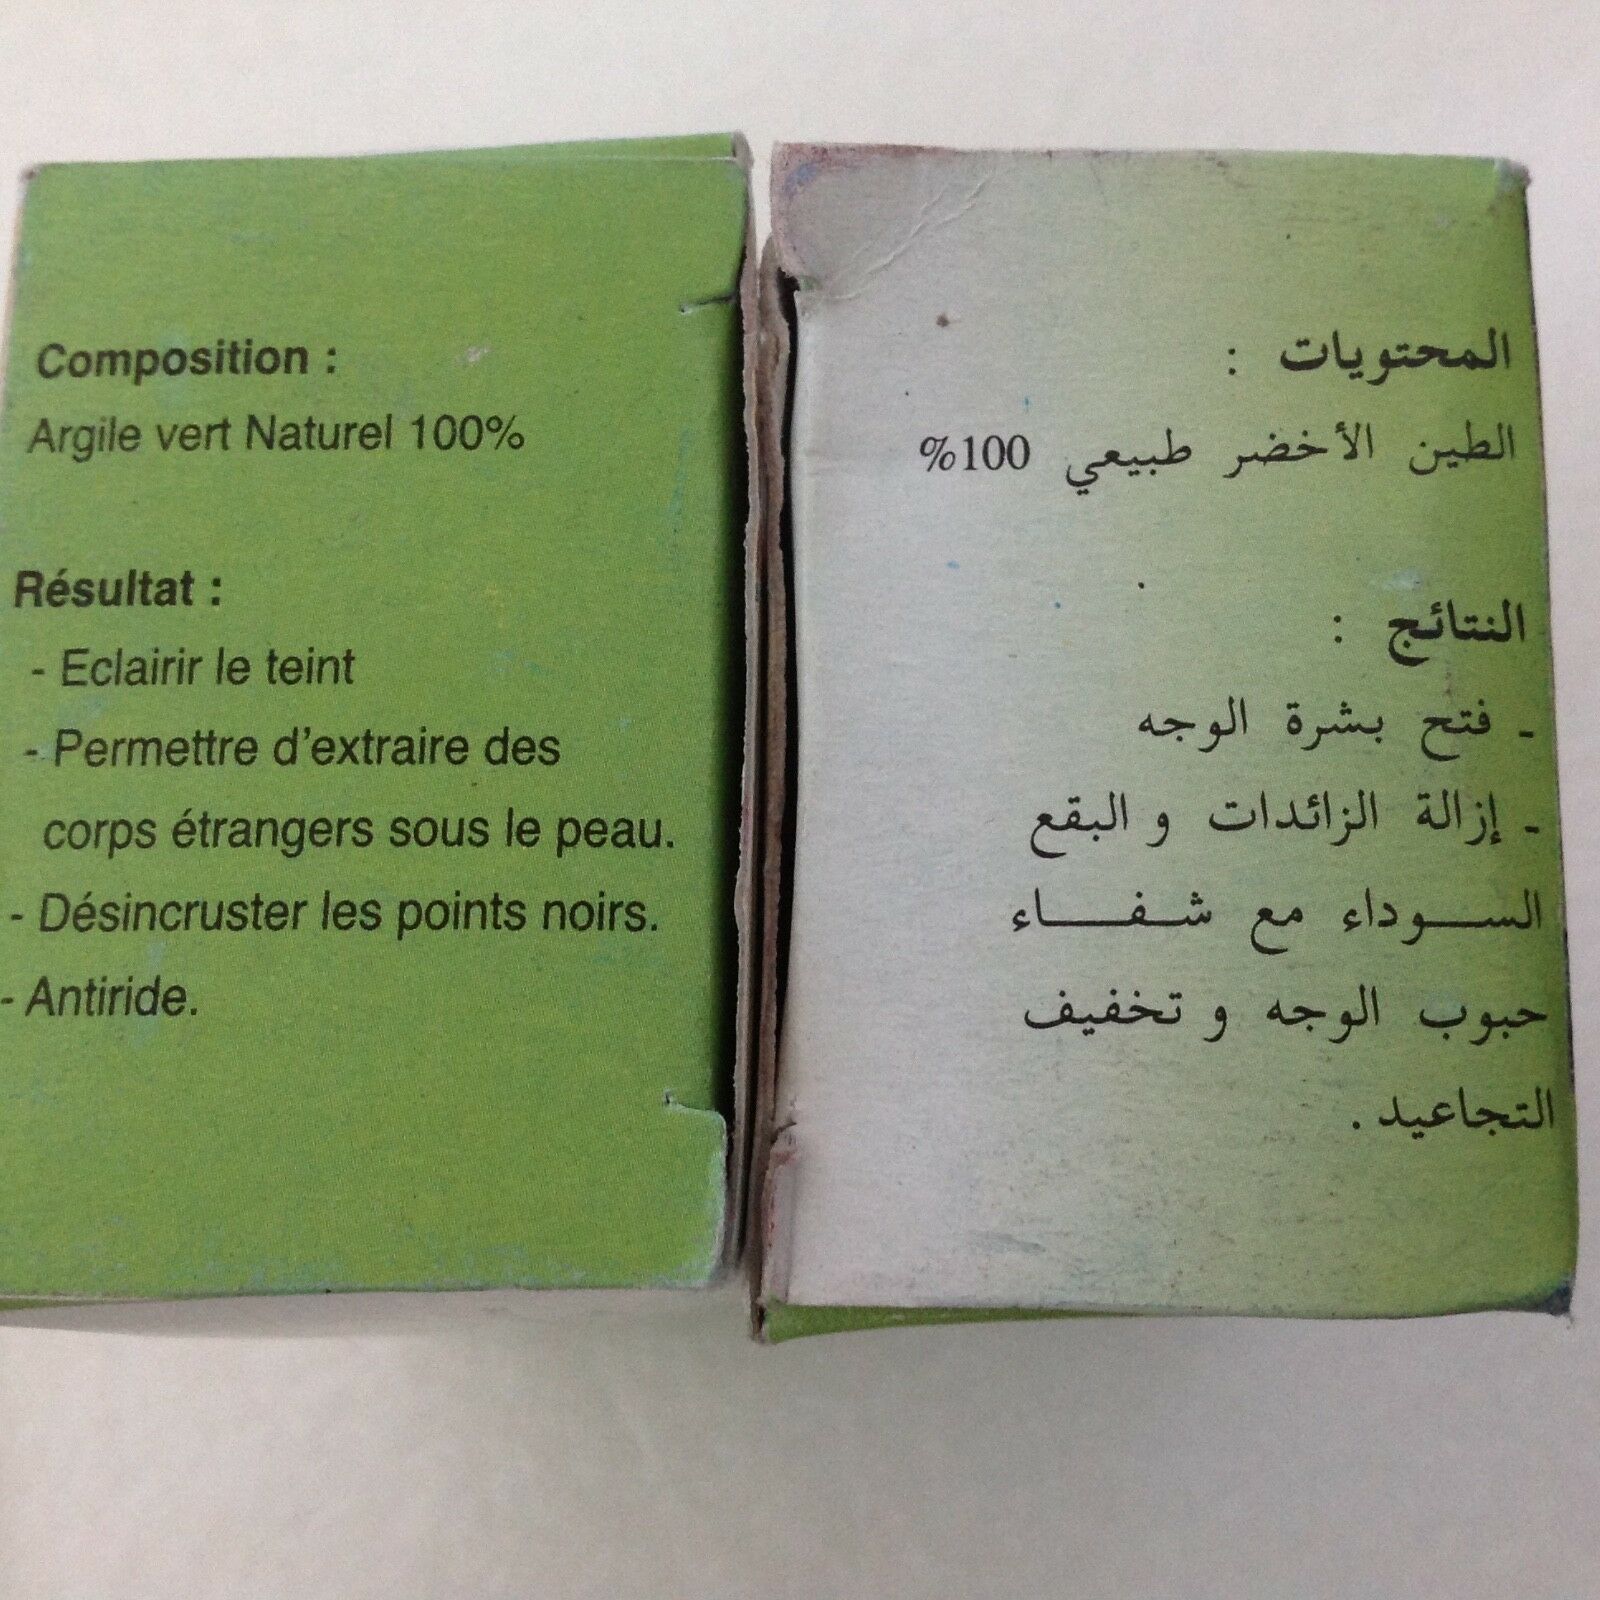 Composition :
Argile vert Naturel 100%
Résultat :
- Eclairir le teint
- Permettre d'extraire des
corps étrangers sous le peau.
- Désincruster les points noirs.
- Antiride.
المحتويات :
الطين الأخضر طبيعي 100%
النتائج :
- فتح بشرة الوجه
- إزالة الزائدات و البقع
الســـوداء مع شـفـــاء
حبوب الوجه و تخفيف
التجاعيد.